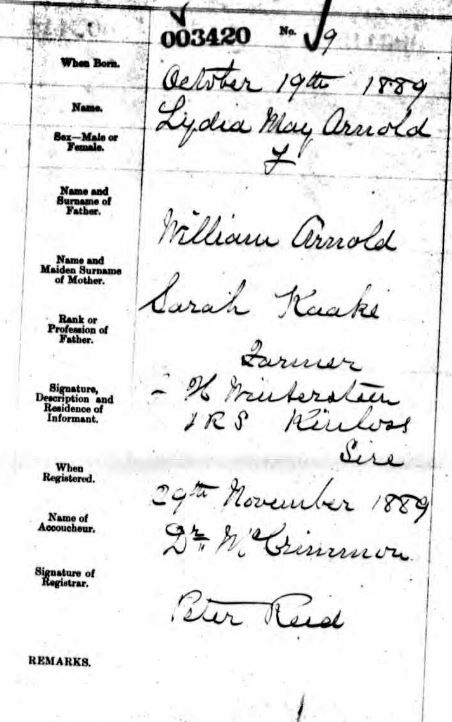 003420 No. 9
When Born.
October 19th 1889
Name.
Lydia May Arnold
Sex—Male or
Female.
F
Name and
Surname of
Father.
William Arnold
Name and
Maiden Surname
of Mother.
Sarah Kaake
Rank or
Profession of
Father.
Farmer
Signature,
Description and
Residence of
Informant.
H Winterstein
I R S Kinloss
Sire
When
Registered.
29th November 1889
Name of
Accoucheur.
Dr. McCrimmon
Signature of
Registrar.
Peter Reid
REMARKS.